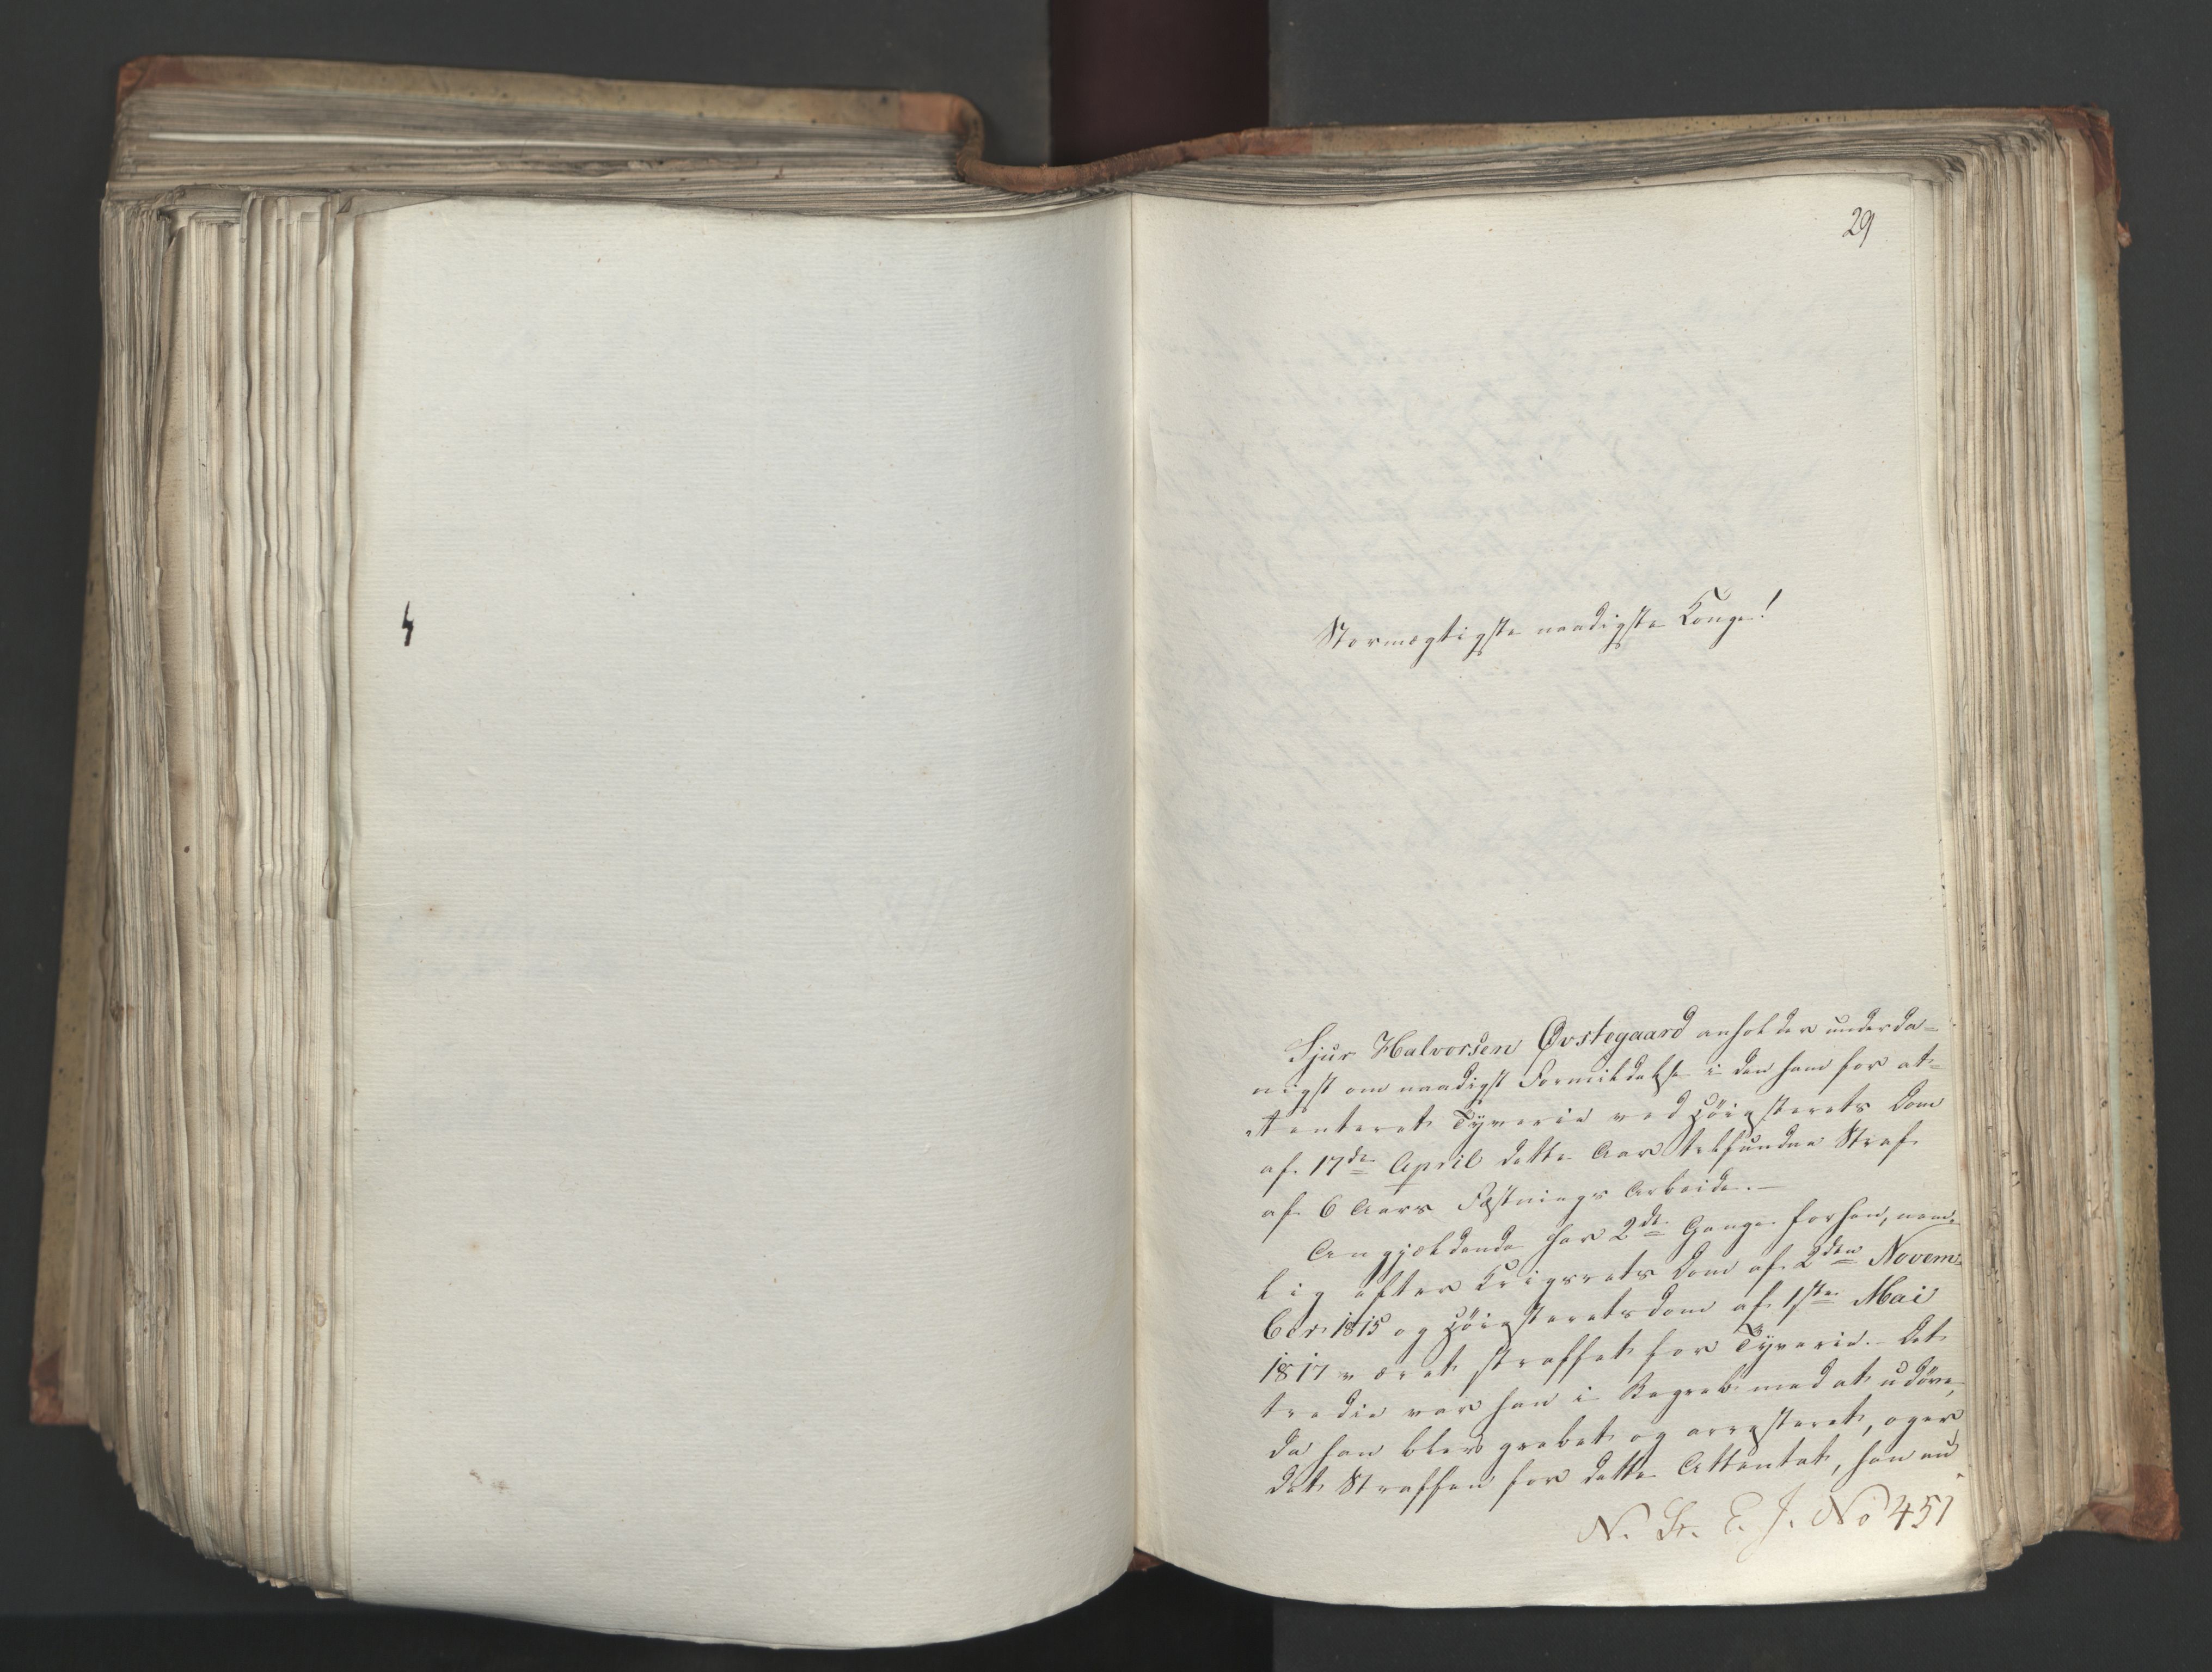 29
Stormægtigste naadigste Konge!
Sjur Halvorsen Øvstegaard anholder underda=
nigst om naadigst Formildelse i den ham for at=
tenteret Tyverie ved Høiesterets Dom
af 17de April dette Aar tilfundne Straf
af 6 Aars Fæstnings Arbeide. —
Angjældende har 2de Gange forhen, nem=
lig efter Krigsrets Dom af 2den Novem=
ber 1815 og Høiesteretsdom af 1ste Mai
1817 været straffet for Tyverie. Det
tredie var han i Begreb med at udøve,
da han blev grebet og arresteret, og er
det Straffen for dette Attentat, han nu
N. St. E. J. No 451